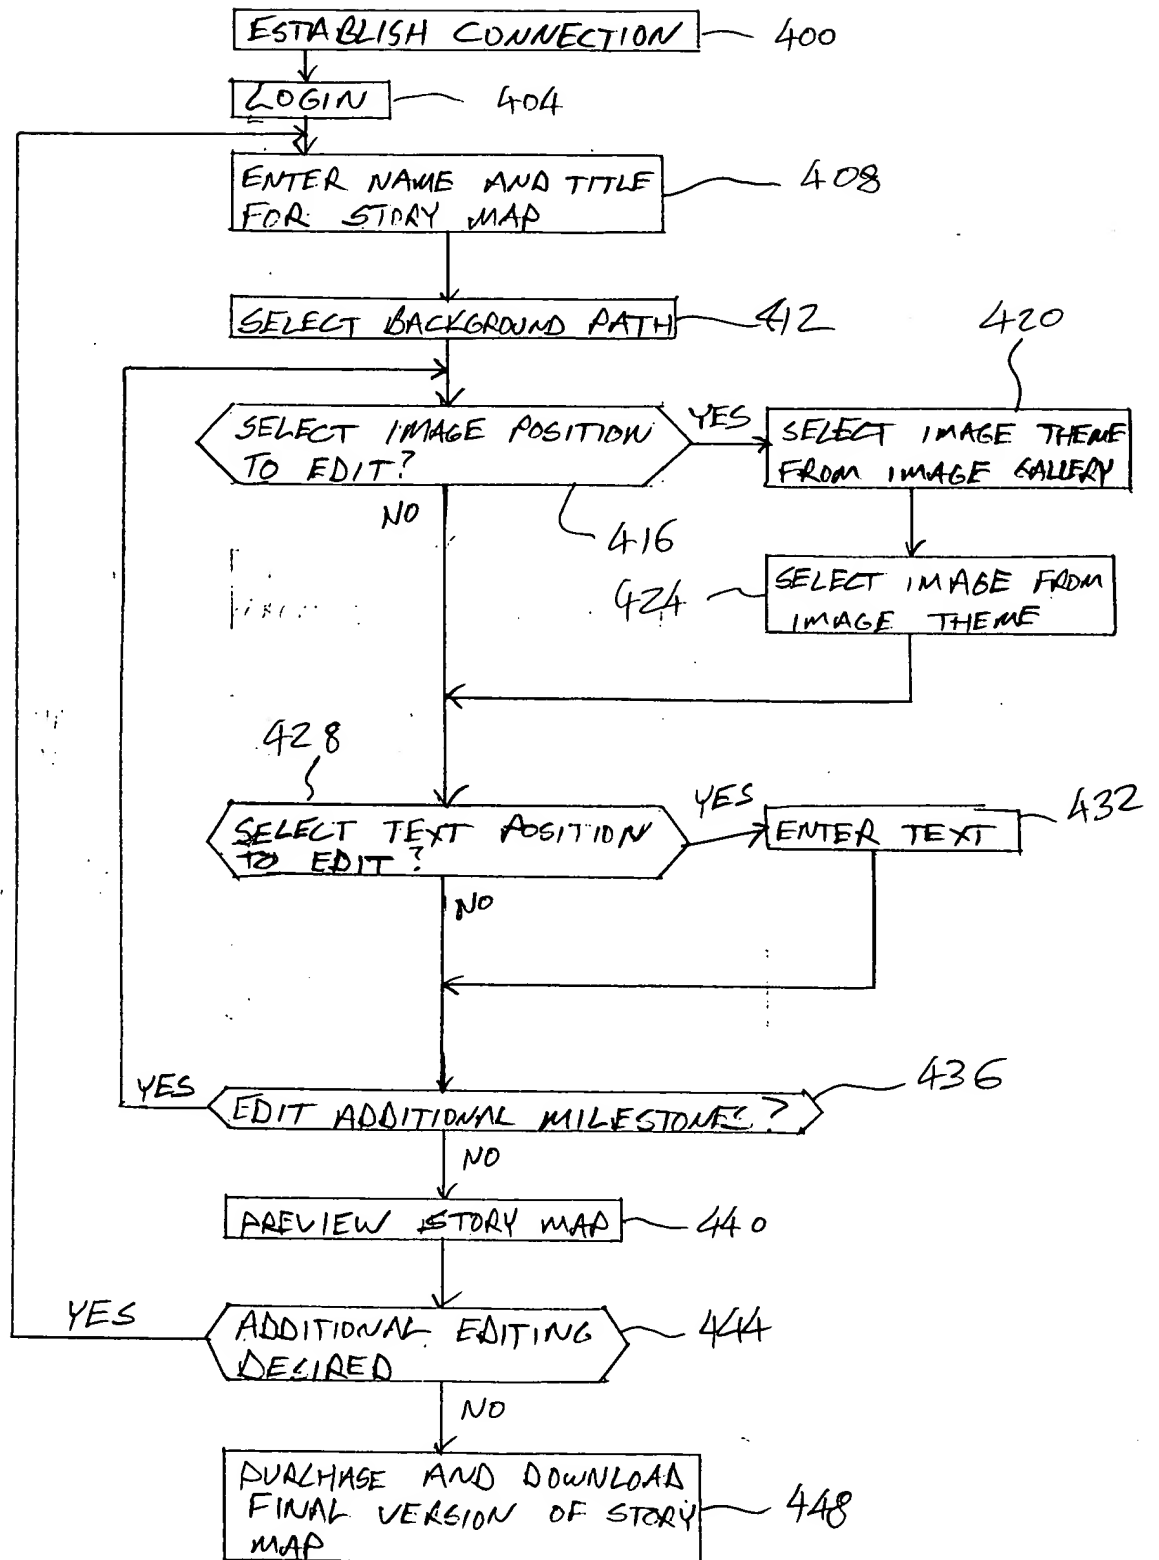 ESTABLISH CONNECTION
400
LOGIN
404
ENTER NAME AND TITLE
FOR STORY MAP
408
SELECT BACKGROUND PATH
412
420
SELECT IMAGE POSITION
TO EDIT?
YES
SELECT IMAGE THEME
FROM IMAGE GALLERY
NO
416
424
SELECT IMAGE FROM
IMAGE THEME
428
SELECT TEXT POSITION
TO EDIT?
YES
ENTER TEXT
432
NO
YES
EDIT ADDITIONAL MILESTONES?
436
NO
PREVIEW STORY MAP
440
YES
ADDITIONAL EDITING
DESIRED
444
NO
PURCHASE AND DOWNLOAD
FINAL VERSION OF STORY
MAP
448